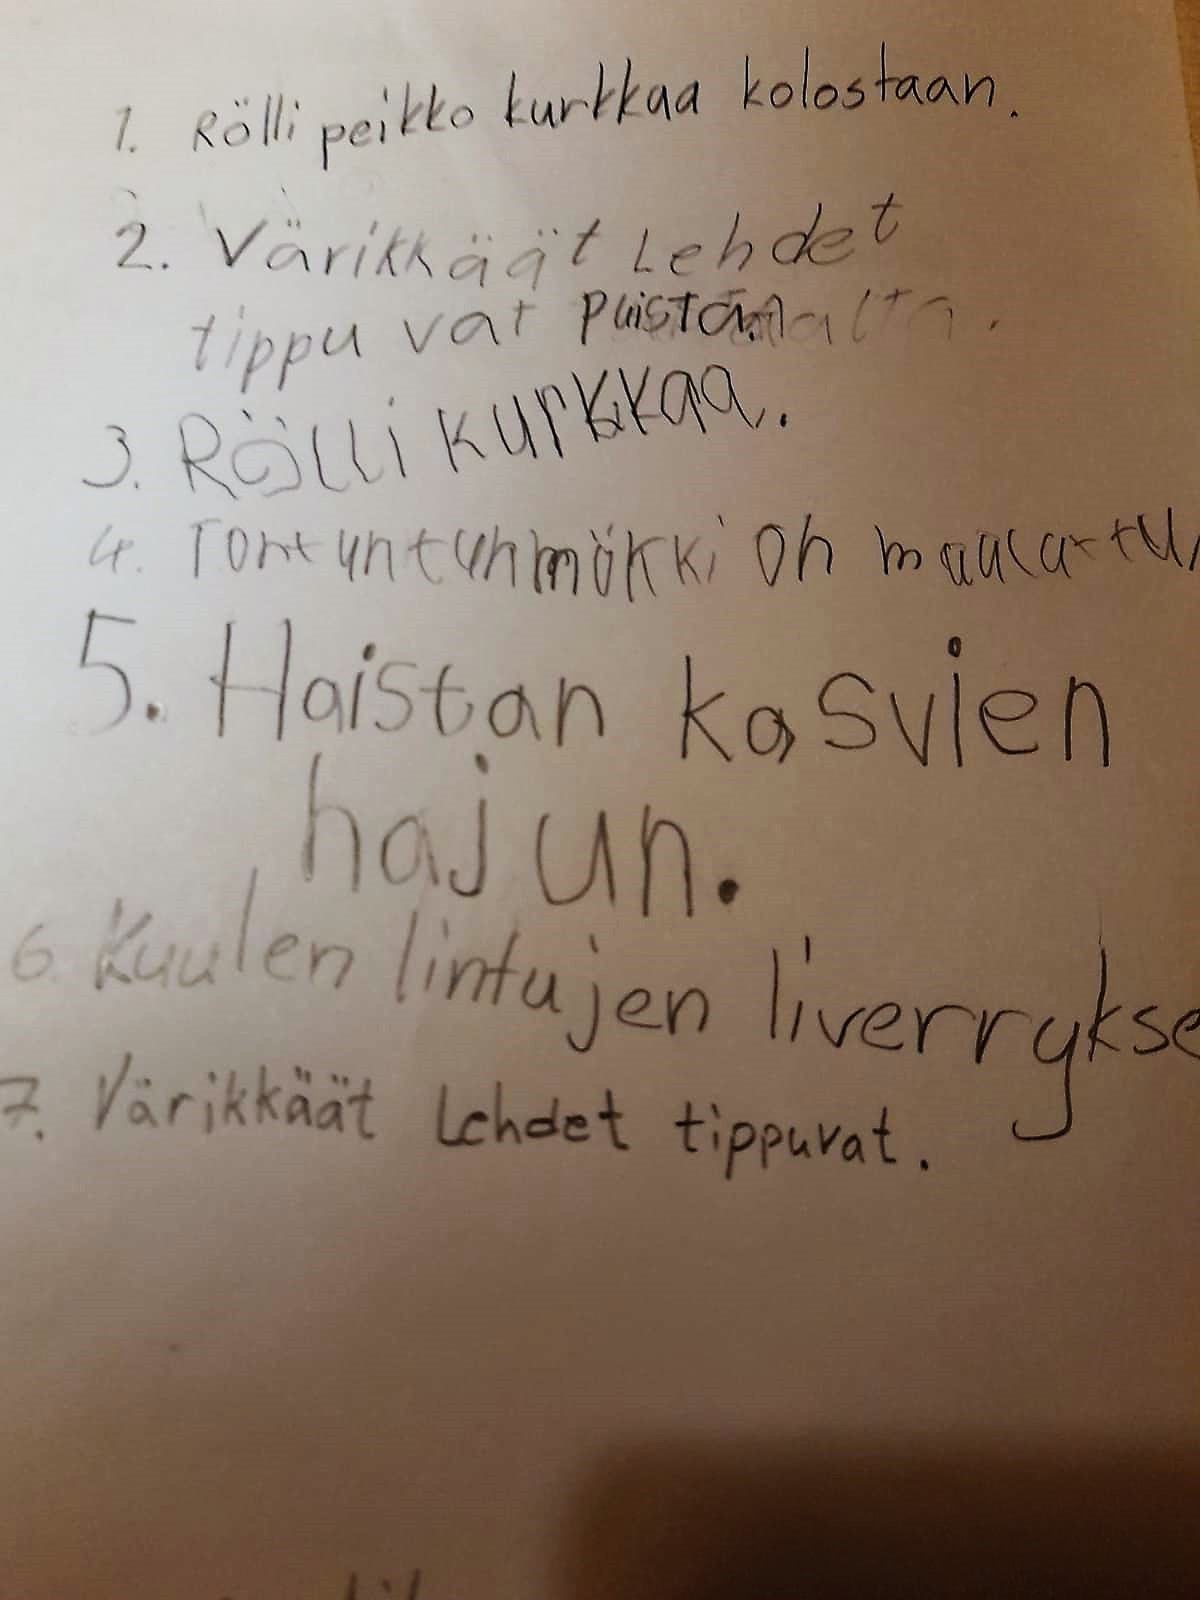 1. Rölli peikko kurkkaa kolostaan.
2. Värikkäät Lehdet
tippu vat
3. Rölli kurkkaa.
4. mökki on
5. Haistan kasvien
hajun.
6. Kuulen lintujen liverrykse
7. Värikkäät Lehdet tippuvat.